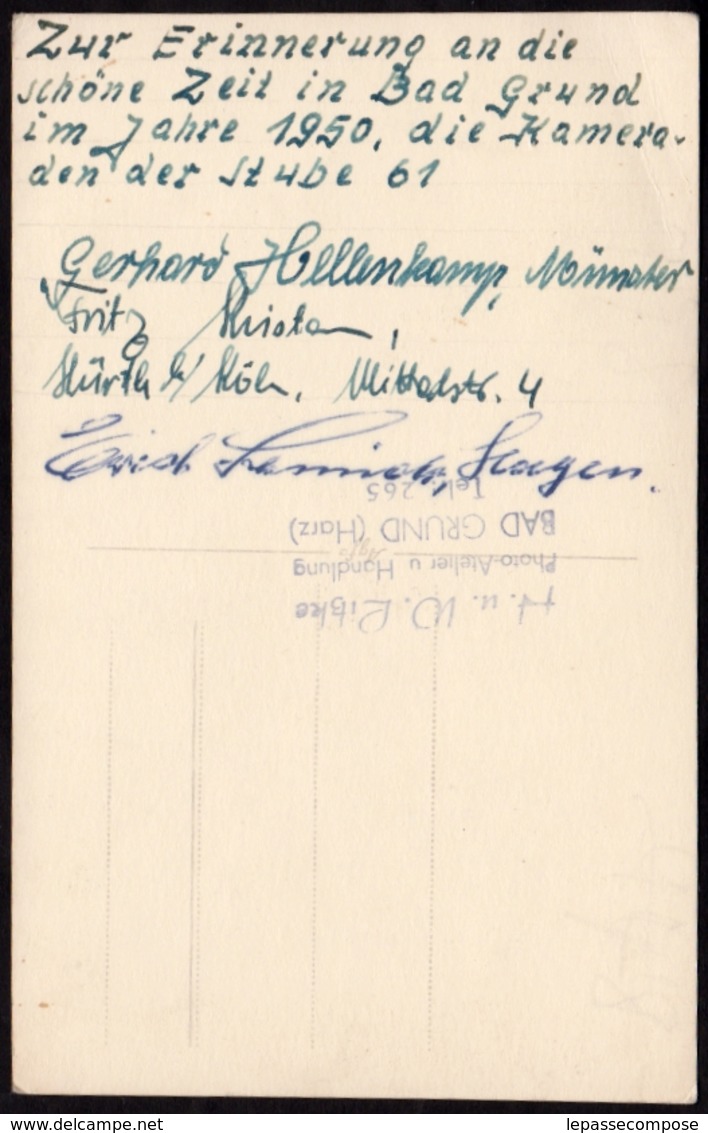 Zur Erinnerung an die
schöne Zeit in Bad Grund
im Jahre 1950, die Kamera-
den der Stube 61
Gerhard Hellenkamp, Münster
Fritz
Hürth b/ Köln, Mittelstr. 4
Erich Hagen.
H. u. W. Litzke
Photo-Atelier u Handlung
BAD GRUND (Harz)
Tel. 265
delcampe.net
lepassecompose